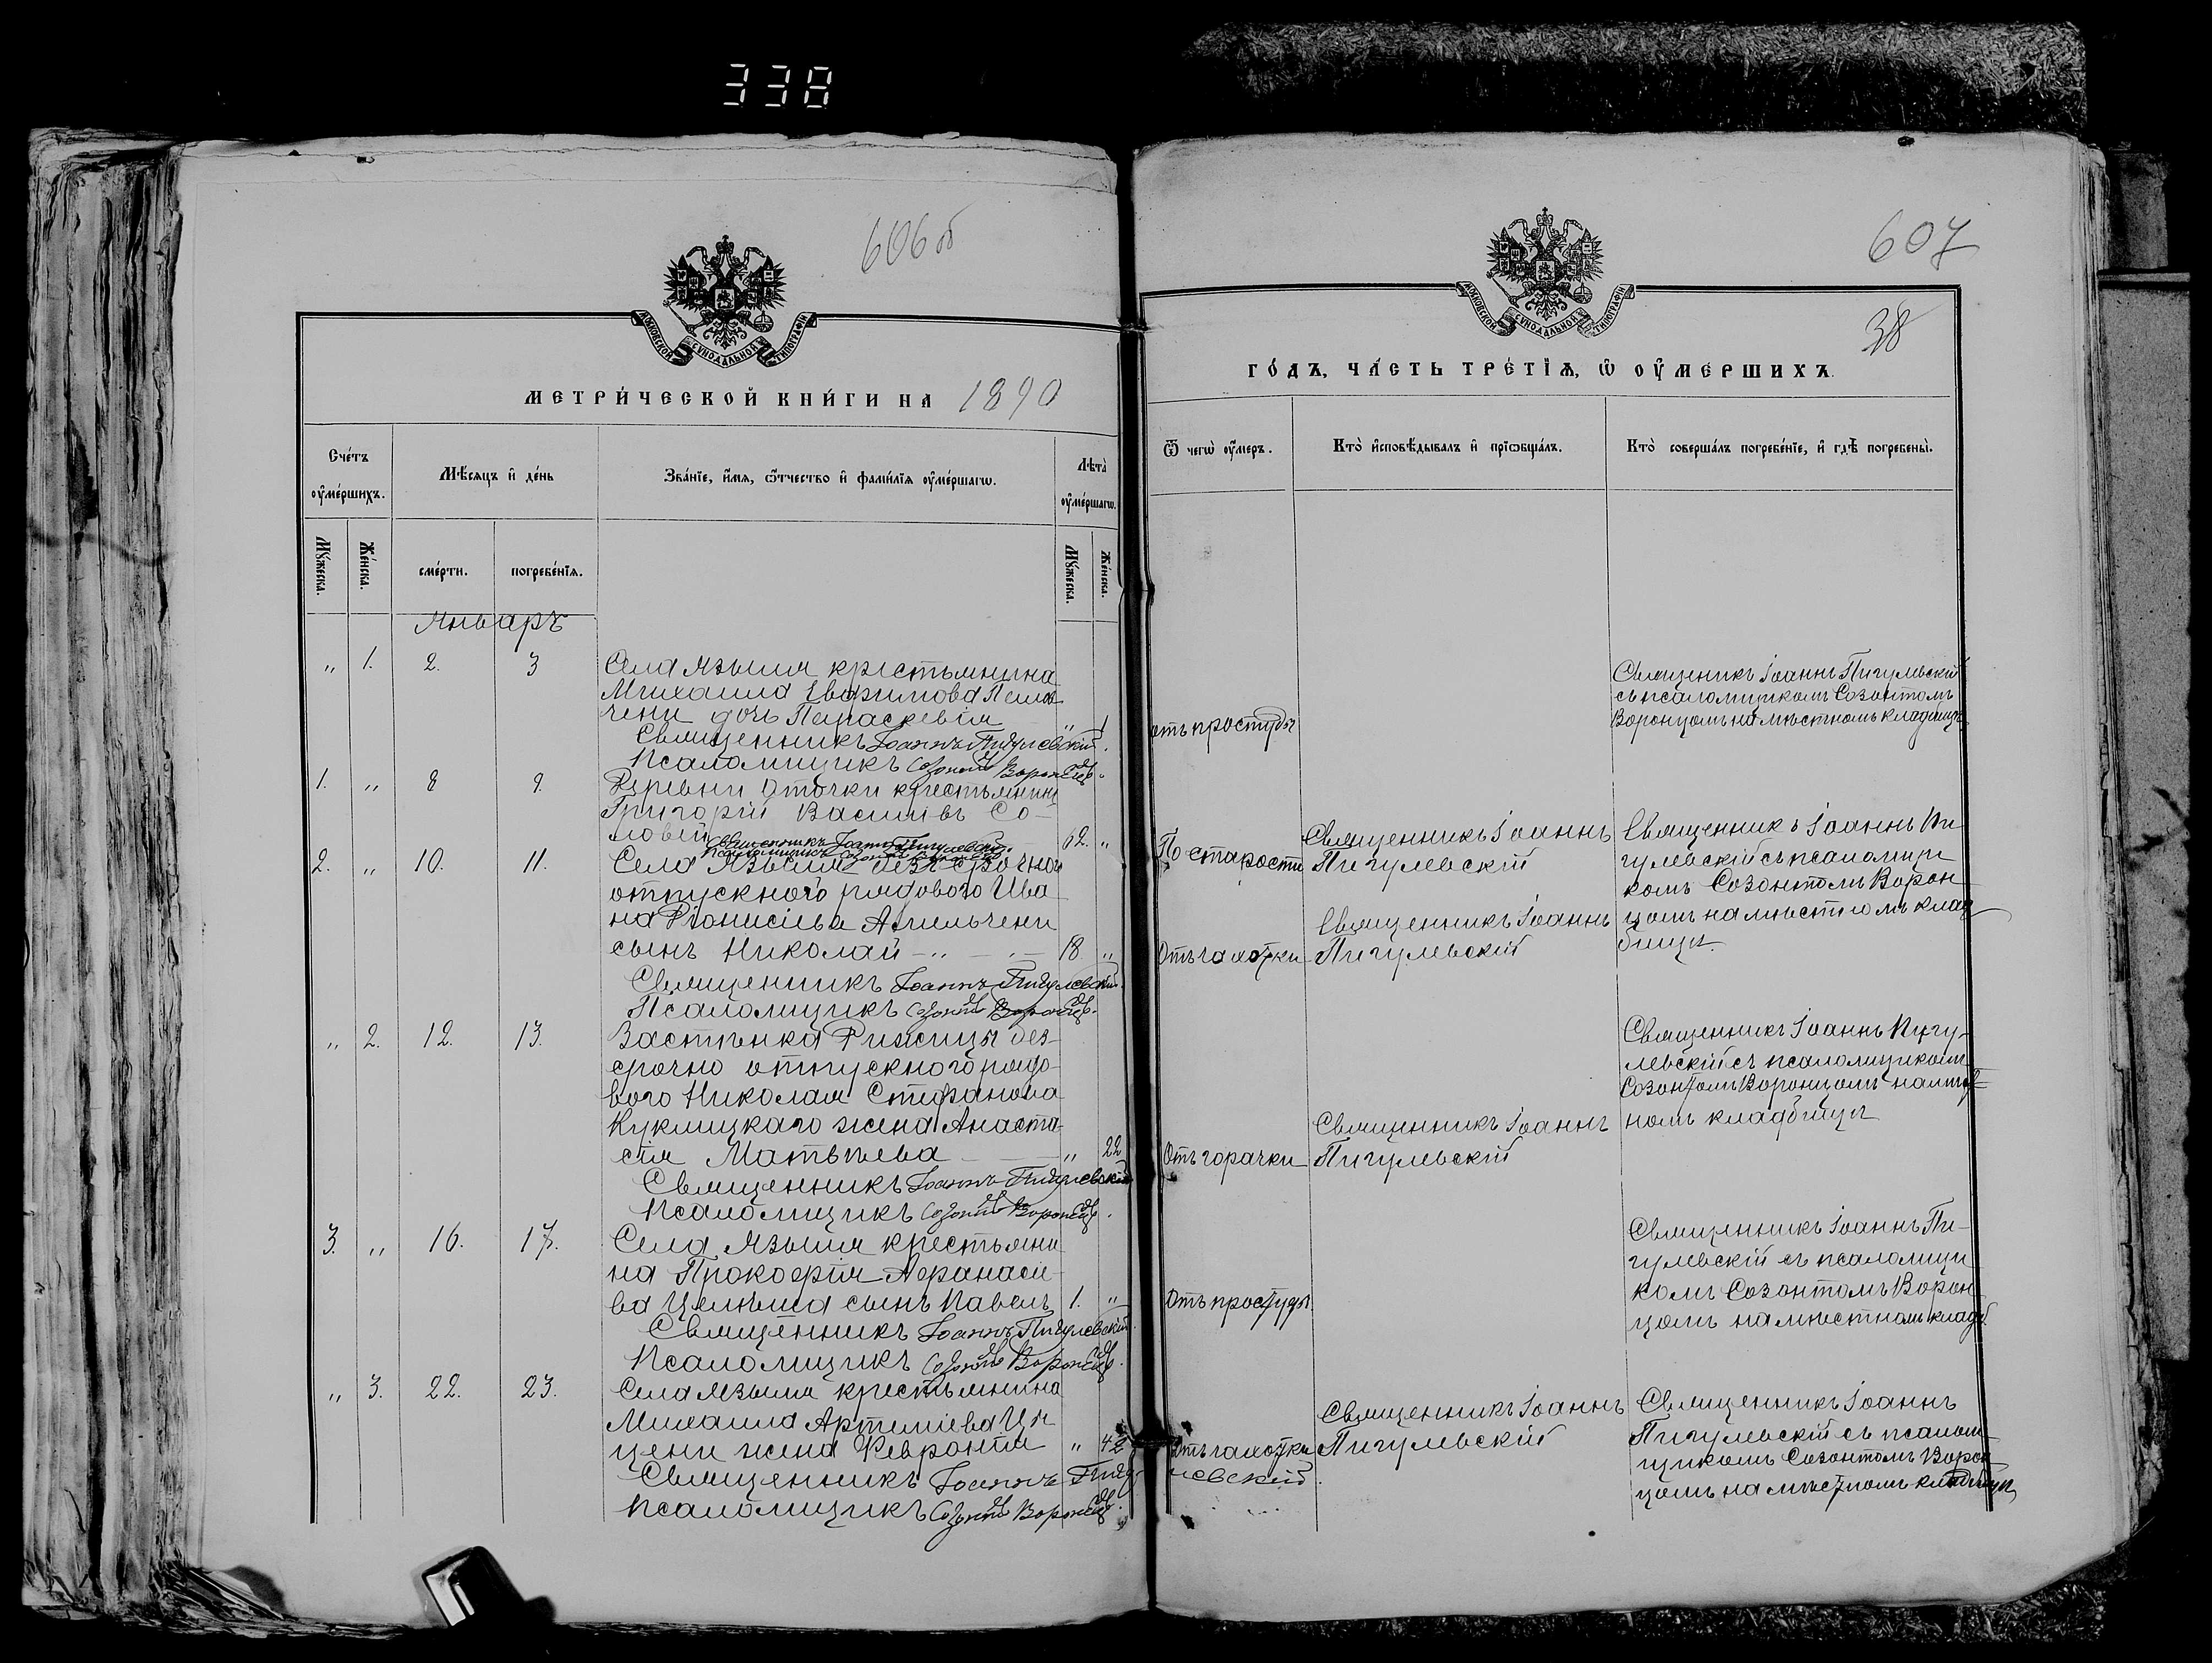 338
606об
МОСКОВСКОЙ СУНОДАЛЬНОЙ ТИПОГРАФІИ
МЕТРИ́ЧЕСКОЙ КНИ́ГИ НА 1890
Сче́тъ оу҆ме́ршихъ.
Мѣ́сяцъ и҆ де́нь
Зва́нїе, и҆́мя, ѻ҆́тчество и҆ фами́лїя оу҆ме́ршагѡ.
Лѣ́та оу҆ме́ршагѡ.
Мꙋ́жеска.
Же́нска.
сме́рти.
погребе́нїя.
Мꙋ́жеска.
Же́нска.
Январь
„ 1. 2. 3 Села Язвиля крестьянина
Михаила Евфимова
чени дочь Параскевія „ 1
Священникъ Іоаннъ Пигулевскій.
Псаломщикъ Созонтъ Воронецъ.
1. „ 8 9. Деревни Оточки крестьянинъ
Григорій Васильевъ Со-
ловей 62. „
Священникъ Іоаннъ Пигулевскій.
Псаломщикъ Созонтъ Воронецъ
2. „ 10. 11. Села Язвиля безсрочно
отпускного рядового Ива
на Діонисіева
сынъ Николай 18. „
Священникъ Іоаннъ Пигулевскій.
Псаломщикъ Созонтъ Воронецъ.
„ 2. 12. 13. Застѣнка без-
срочно отпускного рядо-
вого Николая Стефанова
Куклицкаго жена Анаста-
сія Матвѣева „ 22
Священникъ Іоаннъ Пигулевскій
Псаломщикъ Созонтъ Воронецъ.
3. „ 16. 17. Села Язвиля крестьяни
на Прокофія Афанасіе-
ва сынъ Павелъ 1. „
Священникъ Іоаннъ Пигулевскій.
Псаломщикъ Созонтъ Воронецъ.
„ 3. 22. 23. Села Язвиля крестьянина
Михаила Артеміева
цени жена Февронія „ 42
Священникъ Іоаннъ Пигулевскій.
Псаломщикъ Созонтъ Воронецъ.
607
38
МОСКОВСКОЙ СУНОДАЛЬНОЙ ТИПОГРАФІИ
ГО́ДЪ, ЧА́СТЬ ТРЕ́ТЇѦ, Ѡ҆ ОУ҆МЕ́РШИХЪ.
Ѿ чегѡ̀ оу҆́меръ.
Кто̀ и҆сповѣ́дывалъ и҆ прїѡбща́лъ.
Кто̀ соверша́лъ погребе́нїе, и҆ гдѣ̀ погребены̀.
отъ простуды
Священикъ Іоаннъ Пигулевскій
съ псаломщикомъ Созонтомъ
Воронцомъ на мѣстномъ кладбищѣ
По старости
Священникъ Іоаннъ
Пигулевскій
Священникъ Іоаннъ Пи
гулевскій съ псаломщи
комъ Созонтомъ Ворон
цомъ на мѣстномъ клад
бищѣ.
Отъ чахотки
Священникъ Іоаннъ
Пигулевскій
Отъ горачки
Священникъ Іоаннъ
Пигулевскій
Священникъ Іоаннъ Пигу-
левскій съ псаломщикомъ
Созонтомъ Воронцомъ на мѣст-
номъ кладбищѣ
Отъ простуды
Священникъ Іоаннъ Пи-
гулевскій съ псаломщи
комъ Созонтомъ Ворон-
цомъ на мѣстномъ кладб.
Отъ чахотки
Священникъ Іоаннъ
Пигулевскій
Священникъ Іоаннъ
Пигулевскій съ псалом-
щикомъ Созонтомъ Ворон
цомъ на мѣстномъ кладбищѣ